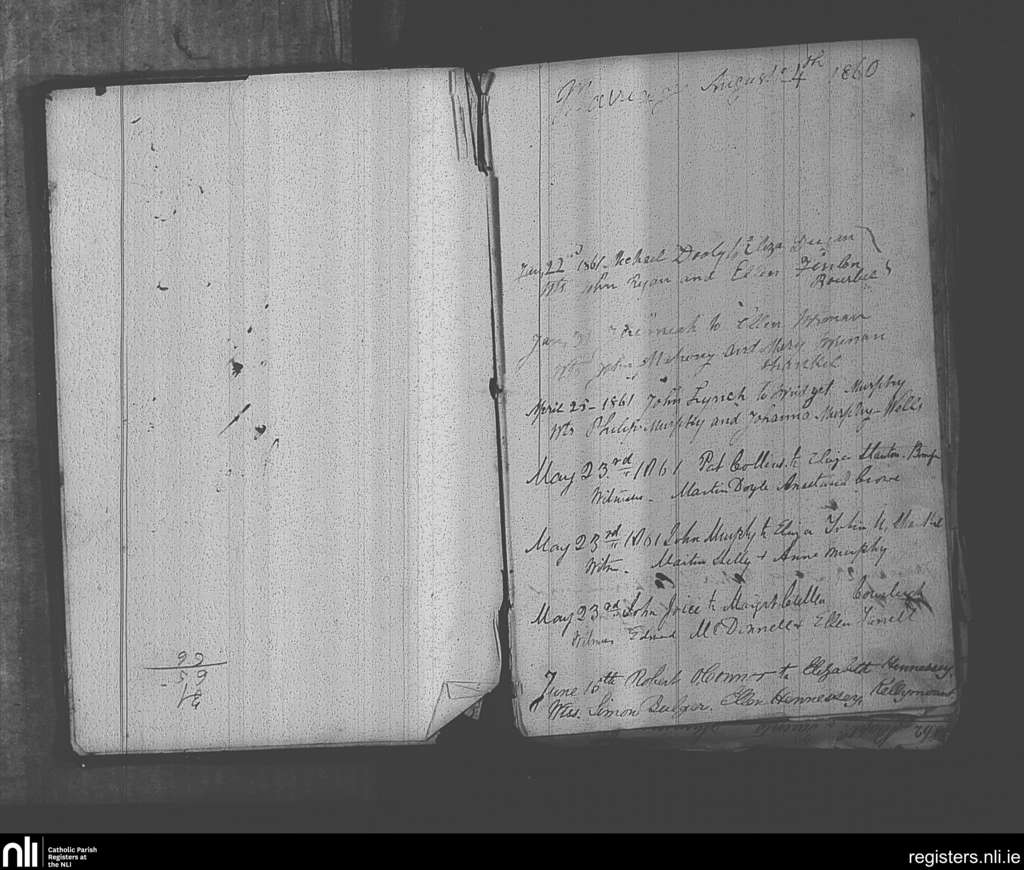 Marriages August 4th 1860
Jany 22nd 1861 Michael Dooly to Eliza Deegan
Wts John Ryan and Ellen Fenlon
Bourbel
Jany to Ellen Brenan
Wts John Mahony and Mary Brenan
Shankel
April 25 - 1861 John Lynch to Bridget Murphy
Wts Philip Murphy and Johanna Murphy - Wells
May 23.rd 1861 Pat Collins to Eliza Stanton
Witness - Martin Doyle Anastasia Crowe
May 23rd 1861 John Murphy to Eliza Tobin
Witn. Martin Kelly + Anne Murphy
May 23rd John Joice to Margrt Cullen
Witness Edmd McDonnell & Ellen Farrell
June 10th Robert O'Connor to Elizabeth Hennessey
Wtss. Simon Bulger. Ellen Hennessey, Kellymount
nli
Catholic Parish
Registers at
the NLI
registers.nli.ie